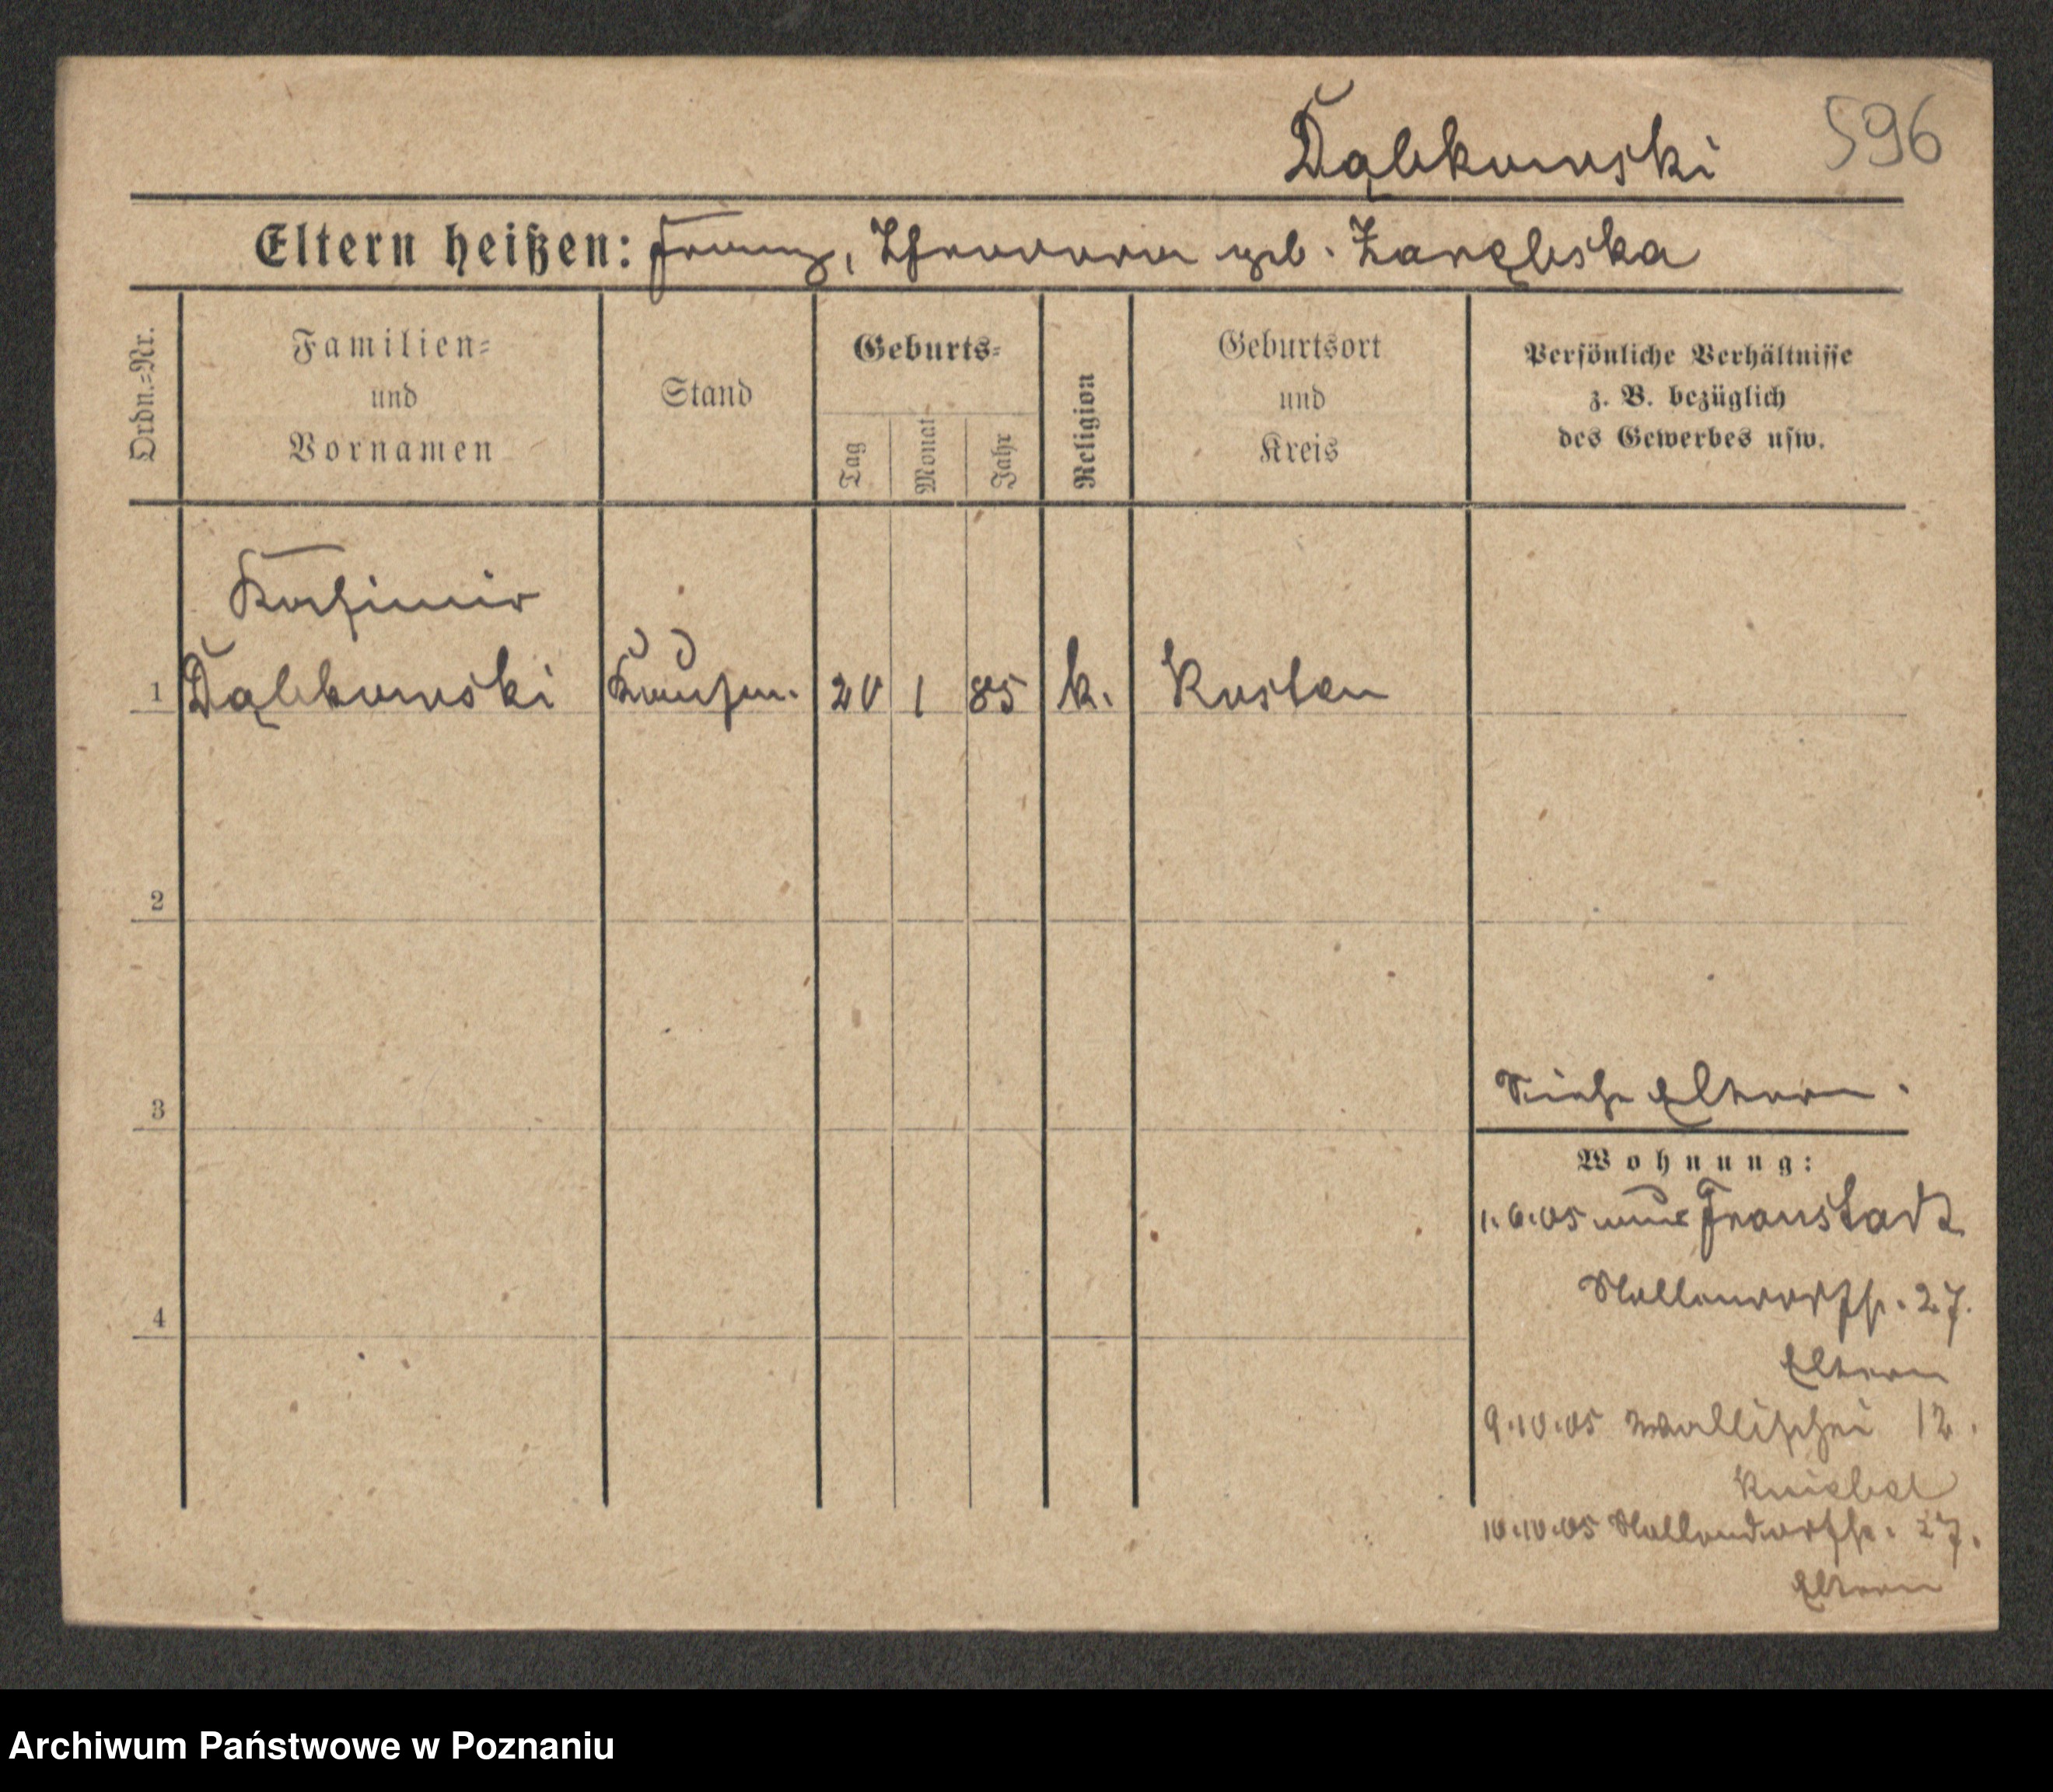 Dąbkowski 596
Eltern heißen: Franz, Theodora geb. Zarębska
Ordn.=Nr.
Familien=
und
Vornamen
Stand
Geburts=
Tag
Monat
Jahr
Religion
Geburtsort
und
Kreis
Persönliche Verhältnisse
z. B. bezüglich
des Gewerbes usw.
Kasimir
1 Dąbkowski Kaufm. 20 1 85 k. Kosten
2
3
4
Siehe Eltern.
Wohnung:
1.6.05 aus Fraustadt
Nollendorfstr. 27.
Eltern
9.10.05 Wallischei 12.
Kniebel
10.10.05 Nollendorfstr. 27.
Eltern
Archiwum Państwowe w Poznaniu